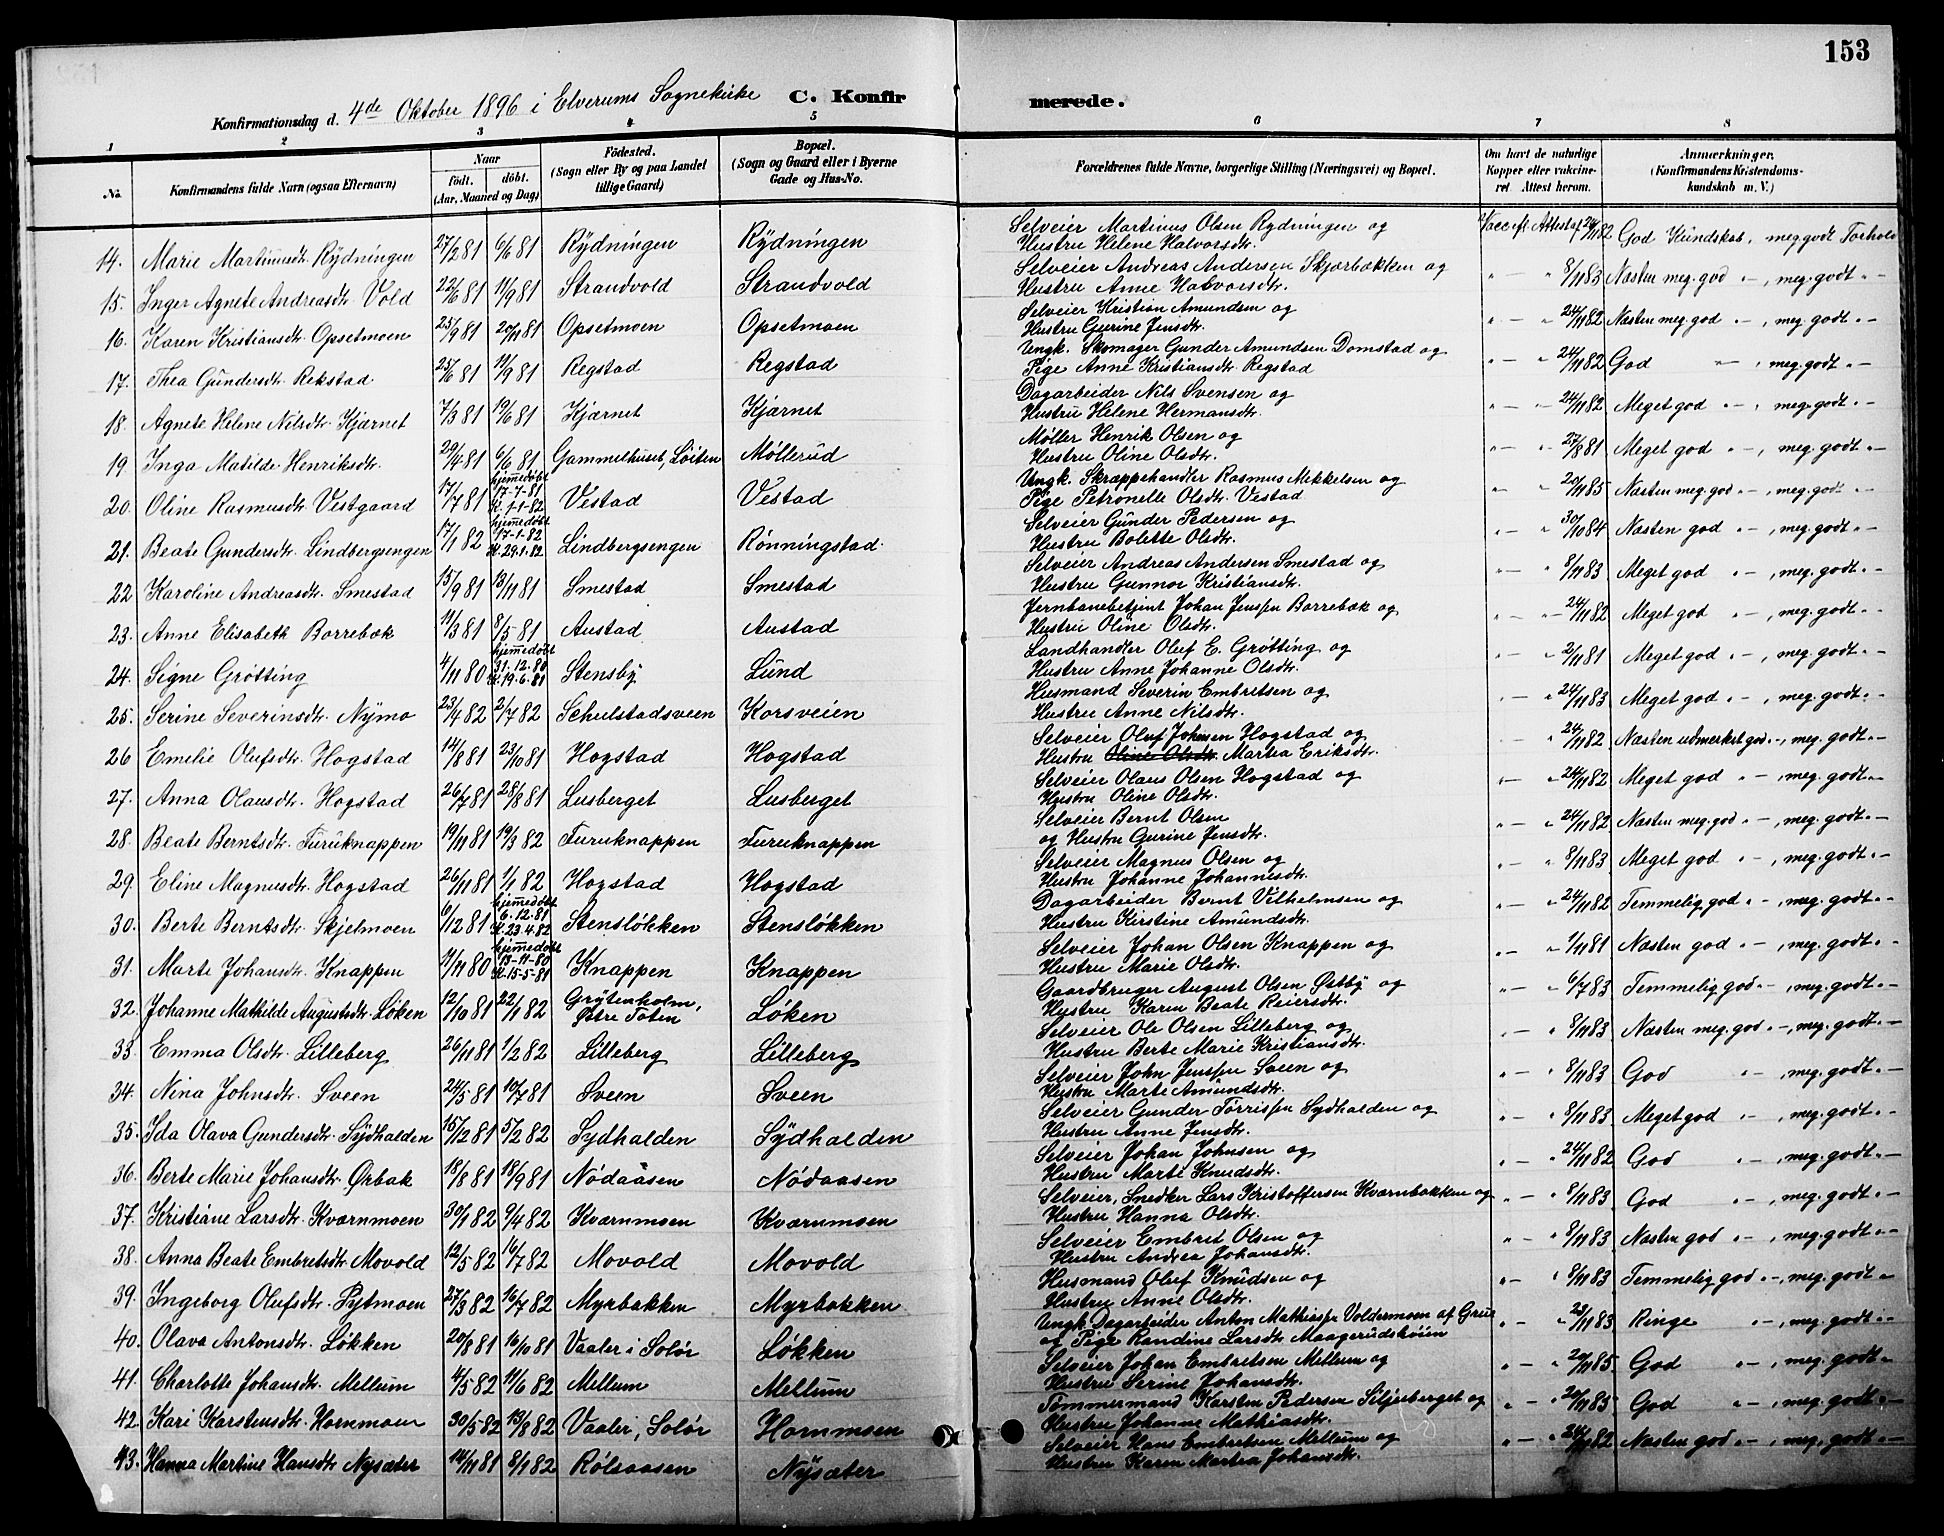 153
Konfirmationsdag d. 4de Oktober 1896 i Elverums Sognekirke C. Konfirmerede.
1 2 3 4 5 6 7 8
No. Konfirmandens fulde Navn (ogsaa Efternavn) Naar födt. döbt. (Aar, Maaned og Dag) Födested. (Sogn eller By og paa Landet tillige Gaard) Bopæl. (Sogn og Gaard eller i Byerne Gade og Hus-No. Forældrenes fulde Navne, borgerlige Stilling (Næringsvei) og Bopæl. Om havt de naturlige Kopper eller vakcineret. Attest herom. Anmærkninger. (Konfirmandens Kristendomskundskab m. V.)
14. Marie Martinusdtr. Rydningen 27/2 81 6/6 81 Rydningen Rydningen Selveier Martinus Olsen Rydningen og Hustru Helene Halvorsdtr. Vacc. ift. Attest af 24/11 82 God Kundskab, meg. godt Forhold
15. Inger Agnete Andreasdtr. Vold 22/6 81 11/9 81 Strandvold Strandvold Selveier Andreas Andersen Skjærbækken og Hustru Anne Halvorsdtr. " — " 8/11 83 Næsten meg. god " —, meg. godt " —
16. Karen Kristiansdtr. Opsetmoen 25/9 81 20/11 81 Opsetmoen Opsetmoen Selveier Kristian Amundsen og Hustru Gurine Jensdtr. " — " 24/11 82 Næsten meg. god " —, meg. godt " —
17. Thea Gundersdtr. Rekstad 25/6 81 11/9 81 Regstad Regstad Ungk. Skomager Gunder Amundsen Domstad og Pige Anne Kristiansdtr. Regstad " — " 24/11 82 God " —, meg. godt " —
18. Agnete Helene Nilsdtr. Kjærnet 7/3 81 19/6 81 Kjærnet Kjærnet Dagarbeider Nils Svensen og Hustru Helene Hermansdtr. " — " 24/11 82 Meget god " —, meg. godt " —
19 Inga Matilde Henriksdtr. 29/4 81 6/6 81 Gammelhuset, Löiten Möllerud Møller Henrik Olsen og Hustru Oline Olsdtr. " — " 27/8 81 Meget god " —, meg. godt " —
20. Oline Rasmusdtr. Vestgaard 17/7 81 hjemedöbt 17-7-81 K. 1-1-82 Vestad Vestad Ungk. Skræppehandler Rasmus Mikkelsen og Pige Petronelle Olsdtr. Vestad " — " 20/11 85 Næsten meg. god " —, meg. godt " —
21. Beate Gundersdtr. Lindbergsengen 17/1 82 hjemedöbt 17-1-82 K. 29-1-82 Lindbergsengen Rönningstad Selveier Gunder Pedersen og Hustru Bolette Olsdtr. " — " 30/10 84 Næsten god " —, meg. godt " —
22 Karoline Andreasdtr. Smestad 15/9 81 13/11 81 Smestad Smestad Selveier Andreas Andersen Smestad og Hustru Gunnor Kristiansdtr. " — " 8/11 83 Meget god " —, meg. godt " —
23. Anne Elisabeth Borrebæk 11/3 81 8/5 81 Austad Austad Jernbanebetjent Johan Jenssen Borrebæk og Hustru Oline Olsdtr. " — " 24/11 82 Meget god " —, meg. godt " —
24. Signe Grötting 4/11 80 hjemedöbt 31-12-80 K. 19-6-81 Stensby Lund Landhandler Oluf E. Grötting og Hustru Anne Johanne Olsdtr. " — " 2/11 81 Meget god " —, meg. godt " —
25. Serine Severinsdtr. Nymo 23/4 82 2/7 82 Schulstadsveen Korsveien Husmand Severin Embretsen og Hustru Anne Nilsdtr. " — " 24/11 83 Meget god " —, meg. godt " —
26 Emelie Olufsdtr. Hogstad 14/8 81 23/10 81 Hogstad Hogstad Selveier Oluf Johnsen Hogstad og Hustru Oline Olsdtr. Martea Eriksdtr. " — " 24/11 82 Næsten udmerket god " —, meg. godt " —
27. Anna Olausdtr. Hogstad 26/7 81 28/8 81 Lusberget Lusberget Selveier Olaus Olsen Hogstad og Hustru Oline Olsdtr. " — " 24/11 82 Meget god " —, meg. godt " —
28. Beate Berntsdtr. Furuknappen 19/11 81 19/3 82 Furuknappen Furuknappen Selveier Bernt Olsen og Hustru Gurine Jensdtr. " — " 24/11 82 Næsten meg. god " —, meg. godt " —
29. Eline Magnusdtr. Hogstad 26/11 81 1/1 82 Hogstad Hogstad Selveier Magnus Olsen og Hustru Johanne Johannesdtr. " — " 8/11 83 Meget god " —, meg. godt " —
30. Berte Berntsdtr. Skjelmoen 6/12 81 hjemedöbt 6-12-81 K. 23-4-82 Stenslökken Stenslökken Dagarbeider Bernt Vilhelmsen og Hustru Kirstine Amundsdtr. " — " 24/11 82 Temmelig god " —, meg. godt " —
31. Marte Johansdtr. Knappen 11/11 80 hjemedöbt 13-11-80 K. 15-5-81 Knappen Knappen Selveier Johan Olsen Knappen og Hustru Marie Olsdtr. " — " 1/11 81 Næsten god " —, meg. godt " —
32. Johanne Mathilde Augustsdtr. Löken 12/10 81 22/1 82 Grytenholm, Østre Toten Löken Gaardbruger August Olsen Østby og Hustru Karen Beate Reiersdtr. " — " 6/7 83 Temmelig god " —, meg. godt " —
33. Emma Olsdtr. Lilleberg 26/11 81 1/2 82 Lilleberg Lilleberg Selveier Ole Olsen Lilleberg og Hustru Berte Marie Kristiansdtr. " — " 8/11 83 Næsten meg. god " —, meg. godt " —
34. Nina Johnsdtr. Sveen 24/5 81 10/7 81 Sveen Sveen Selveier John Jenssen Sveen og Hustru Marte Amundsdtr. " — " 8/11 83 God " —, meg. godt " —
35. Ida Olava Gundersdtr. Sydhalden 15/12 81 5/2 82 Sydhalden Sydhalden Selveier Gunder Törrissen Sydhalden og Hustru Anne Jensdtr. " — " 8/11 83 Meget god " —, meg. godt " —
36. Berte Marie Johansdtr. Ørbæk 18/8 81 18/9 81 Nödaasen Nödaasen Selveier Johan Johnsen og Hustru Marte Knudsdtr. " — " 24/11 82 God " —, meg. godt " —
37. Kristiane Larsdtr. Kværnmoen 30/1 82 9/4 82 Kværnmoen Kværnmoen Selveier, Snedker Lars Kristoffersen Kværnbækken og Hustru Hanna Olsdtr. " — " 8/11 83 God " —, meg. godt " —
38. Anna Beate Embretsdtr. Movold 12/5 82 16/7 82 Movold Movold Selveier Embret Olsen og Hustru Andrea Johansdtr. " — " 8/11 83 Næsten god " —, meg. godt " —
39. Ingeborg Olufsdtr. Pytmoen 27/3 82 16/7 82 Myrbakken Myrbakken Husmand Oluf Knudsen og Hustru Anne Olsdtr. " — " 8/11 83 Temmelig god " —, meg. godt " —
40. Olava Antonsdtr. Lökken 20/8 81 16/10 81 Vaaler i Solör Lökken Ungk. Dagarbeider Anton Mathiassen Voldermoen af Grue og Pige Randine Larsdtr. Maagerudskoien " — " 23/11 83 Ringe " —, meg. godt " —
41. Charlotte Johansdtr. Mellum 4/5 82 11/6 82 Mellum Mellum Selveier Johan Embretsen Mellum og Hustru Serine Johansdtr. " — " 20/11 85 God " —, meg. godt " —
42. Kari Karstensdtr. Hornmoen 30/5 82 13/8 82 Vaaler, Solör Hornmoen Tömmermand Karsten Pedersen Siljeberget og Hustru Johanne Mathiasdtr. " — " 20/11 85 God " —, meg. godt " —
43. Hanna Martine Hansdtr. Nysæter 14/11 81 8/1 82 Rölsaasen Nysæter Selveier Hans Embretsen Mellum og Hustru Karen Martea Johansdtr. " — " 24/11 82 Næsten god " —, meg. godt " —